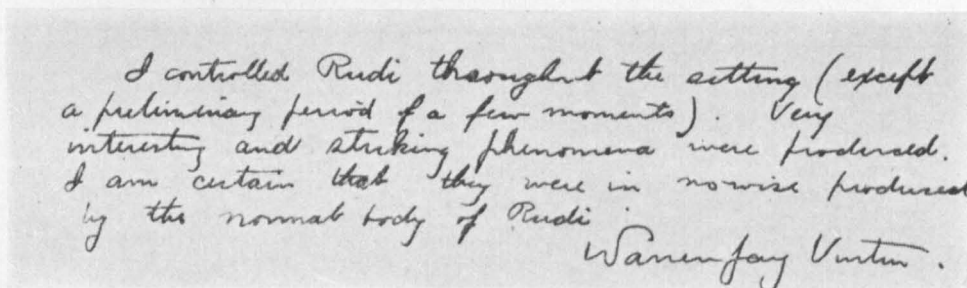 I controlled Rudi throughout the sitting (except
a preliminary period of a few moments). Very
interesting and striking phenomena were produced.
I am certain that they were in nowise produced
by the normal body of Rudi
Warren Jay Vinton.